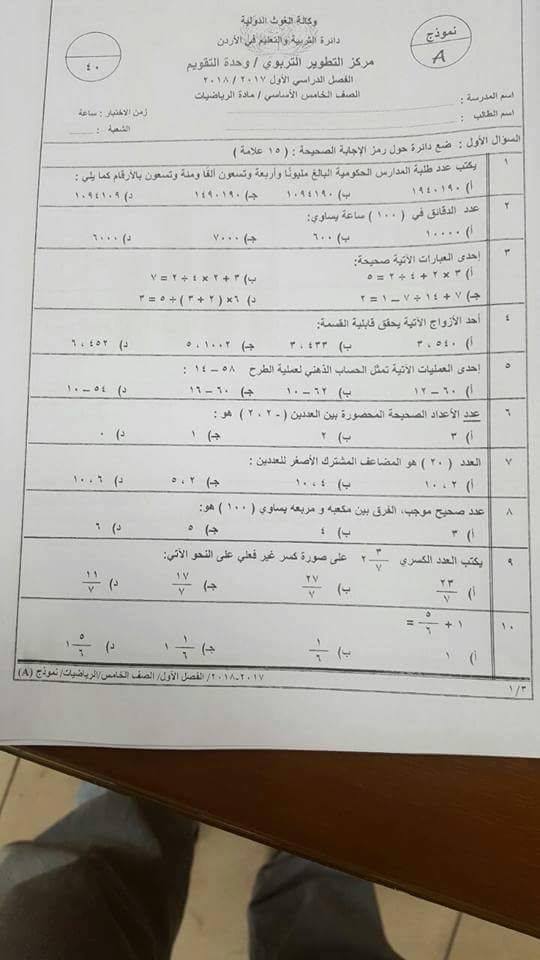 نموذج
A
وكالة الغوث الدولية
دائرة التربية والتعليم في الأردن
مركز التطوير التربوي / وحدة التقويم
الفصل الدراسي الأول ٢٠١٧ / ٢٠١٨
الصف الخامس الأساسي / مادة الرياضيات
٤٠
اسم المدرسة :
زمن الاختبار : ساعة
اسم الطالب :
الشعبة :
السؤال الأول : ضع دائرة حول رمز الإجابة الصحيحة : ( ١٥ علامة )
١ يكتب عدد طلبة المدارس الحكومية البالغ مليونًا وأربعة وتسعون ألفًا ومئة وتسعون بالأرقام كما يلي :
أ) ١٩٤٠١٩٠ ب) ١٠٩٤١٩٠ جـ) ١٤٩٠١٩٠ د) ١٠٩٤١٠٩
٢ عدد الدقائق في ( ١٠٠ ) ساعة يساوي:
أ) ١٠٠٠٠ ب) ٦٠٠ جـ) ٧٠٠٠ د) ٦٠٠٠
٣ إحدى العبارات الآتية صحيحة:
أ) ٣ × ٢ + ٤ ÷ ٢ = ٥ ب) ٣ + ٢ × ٤ ÷ ٢ = ٧
جـ) ٧ + ١٤ ÷ ٧ – ١ = ٢ د) ٦× ( ٢ + ٣ ) ÷ ٥ = ٣
٤ أحد الأزواج الآتية يحقق قابلية القسمة:
أ) ٥٤٠ ، ٣ ب) ٤٣٣ ، ٣ جـ) ١٠٠٢ ، ٥ د) ٤٥٢ ، ٦
٥ إحدى العمليات الآتية تمثل الحساب الذهني لعملية الطرح ٥٨ – ١٤ :
أ) ٦٠ – ١٢ ب) ٦٢ – ١٠ جـ) ٦٠ – ١٦ د) ٥٤ – ١٠
٦ عدد الأعداد الصحيحة المحصورة بين العددين ( -٢ ، ٢ ) هو :
أ) ٣ ب) ٢ جـ) ١ د) ٠
٧ العدد ( ٢٠ ) هو المضاعف المشترك الأصغر للعددين :
أ) ٢ ، ١٠ ب) ٤ ، ١٠ جـ) ٢ ، ٥ د) ٦ ، ١٠
٨ عدد صحيح موجب، الفرق بين مكعبه و مربعه يساوي ( ١٠٠ ) هو:
أ) ٣ ب) ٤ جـ) ٥ د) ٦
٩ يكتب العدد الكسري ٢ ٣/٧ على صورة كسر غير فعلي على النحو الآتي:
أ) ٢٣/٧ ب) ٢٧/٧ جـ) ١٧/٧ د) ١١/٧
١٠ ١ + ٥/٦ =
أ) ١ ب) ١/٦ جـ) ١ ١/٦ د) ١ ٥/٦
٢٠١٧-٢٠١٨/ الفصل الأول/ الصف الخامس/الرياضيات/ نموذج (A)
١/٣